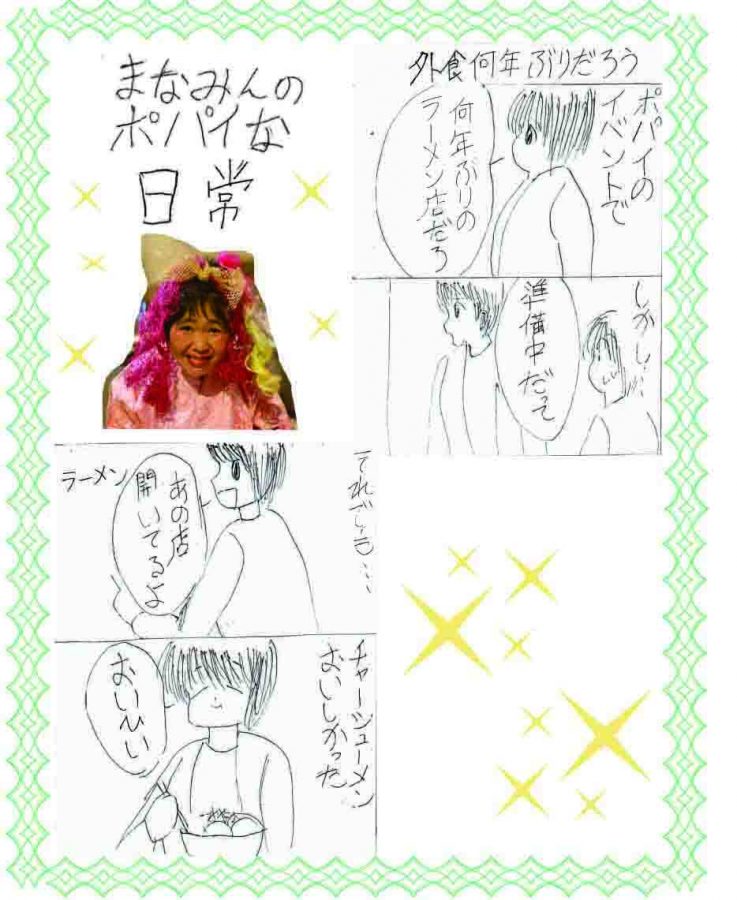 まなみんの
ポパイな
日常
外食何年ぶりだろう
ポパイの
イベントで
何年ぶりの
ラーメン店だろ
しかし…
準備中だって
それでも…
あの店
開いてるよ
ラーメン
チャーシューメン
おいしかった
おいひい